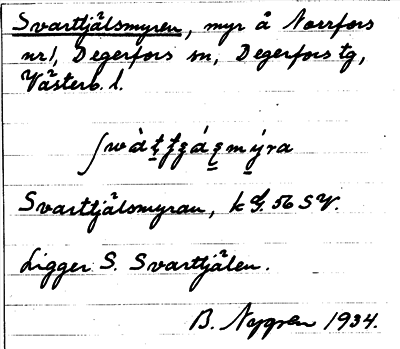 Svarttjälsmyren, myr å Norrfors
nr 1, Degerfors sn, Degerfors tg,
Västerb. l.
Svarttjälsmyran, k bl. 56 SV.
Ligger S. Svarttjälen.
B. Nygren 1934.